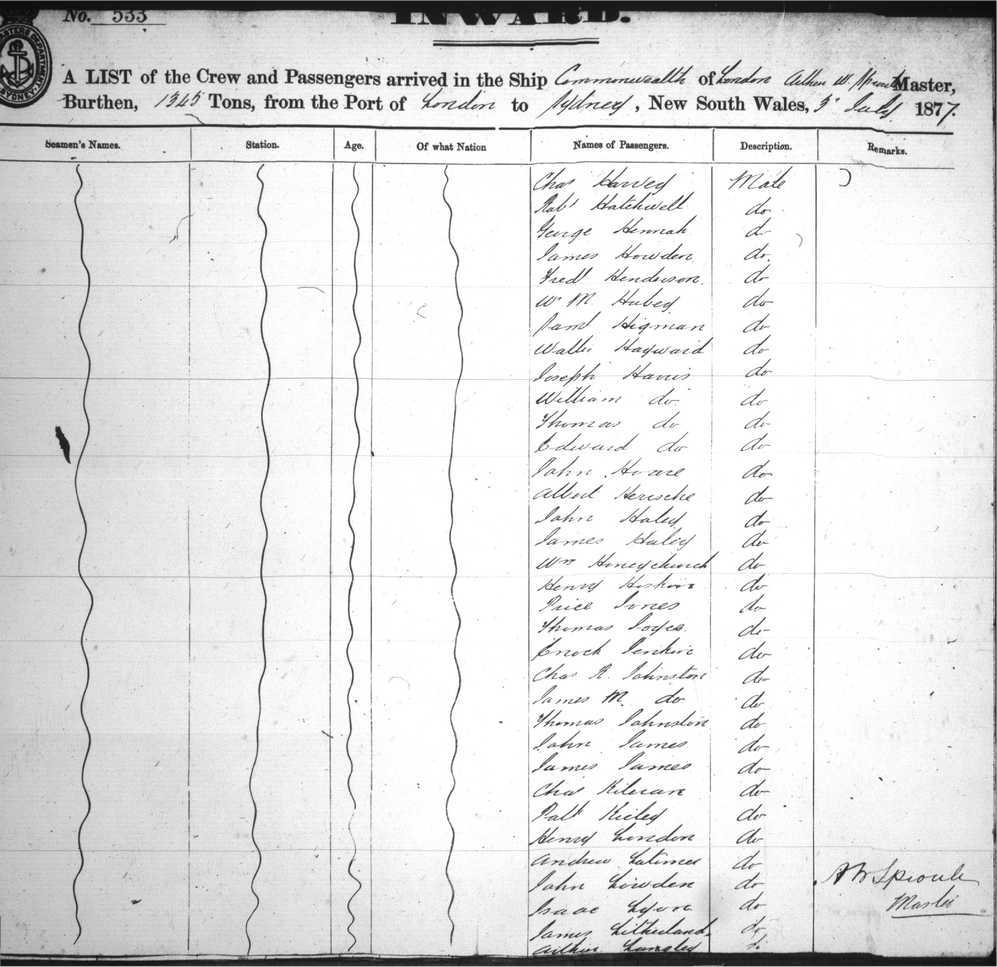 No. 533
INWARD.
A LIST of the Crew and Passengers arrived in the Ship Commonwealth of London Arthur W. Sproule Master,
Burthen, 1345 Tons, from the Port of London to Sydney, New South Wales, 3d July 1877.
Seamen's Names. Station. Age. Of what Nation Names of Passengers. Description. Remarks.
Chas Harvey Male
Robt Hatchwell do
George Hennah d
James Howden do.
Fredk Henderson. do
Wm M Hubey do
Saml Higman do
Walter Hayward do
Joseph Harris do
William do do
Thomas do do
Edward do do
John Hoare do
Albert do
John Haley do
James Haley do
Wm Honeychurch do
Henry Hoskin do
Price Jones do
Thomas Joyce do
Enoch Jenkin do
Chas R. Johnston do
James M. do do
Thomas Johnston do
John James do
James James do
Chas do
Patk Kieley do
Henry London do
Andrew Latimer do
John Lowden do
A W Sproule
Isaac Lyon do
Master
James Litherland do
Arthur Lumley d.